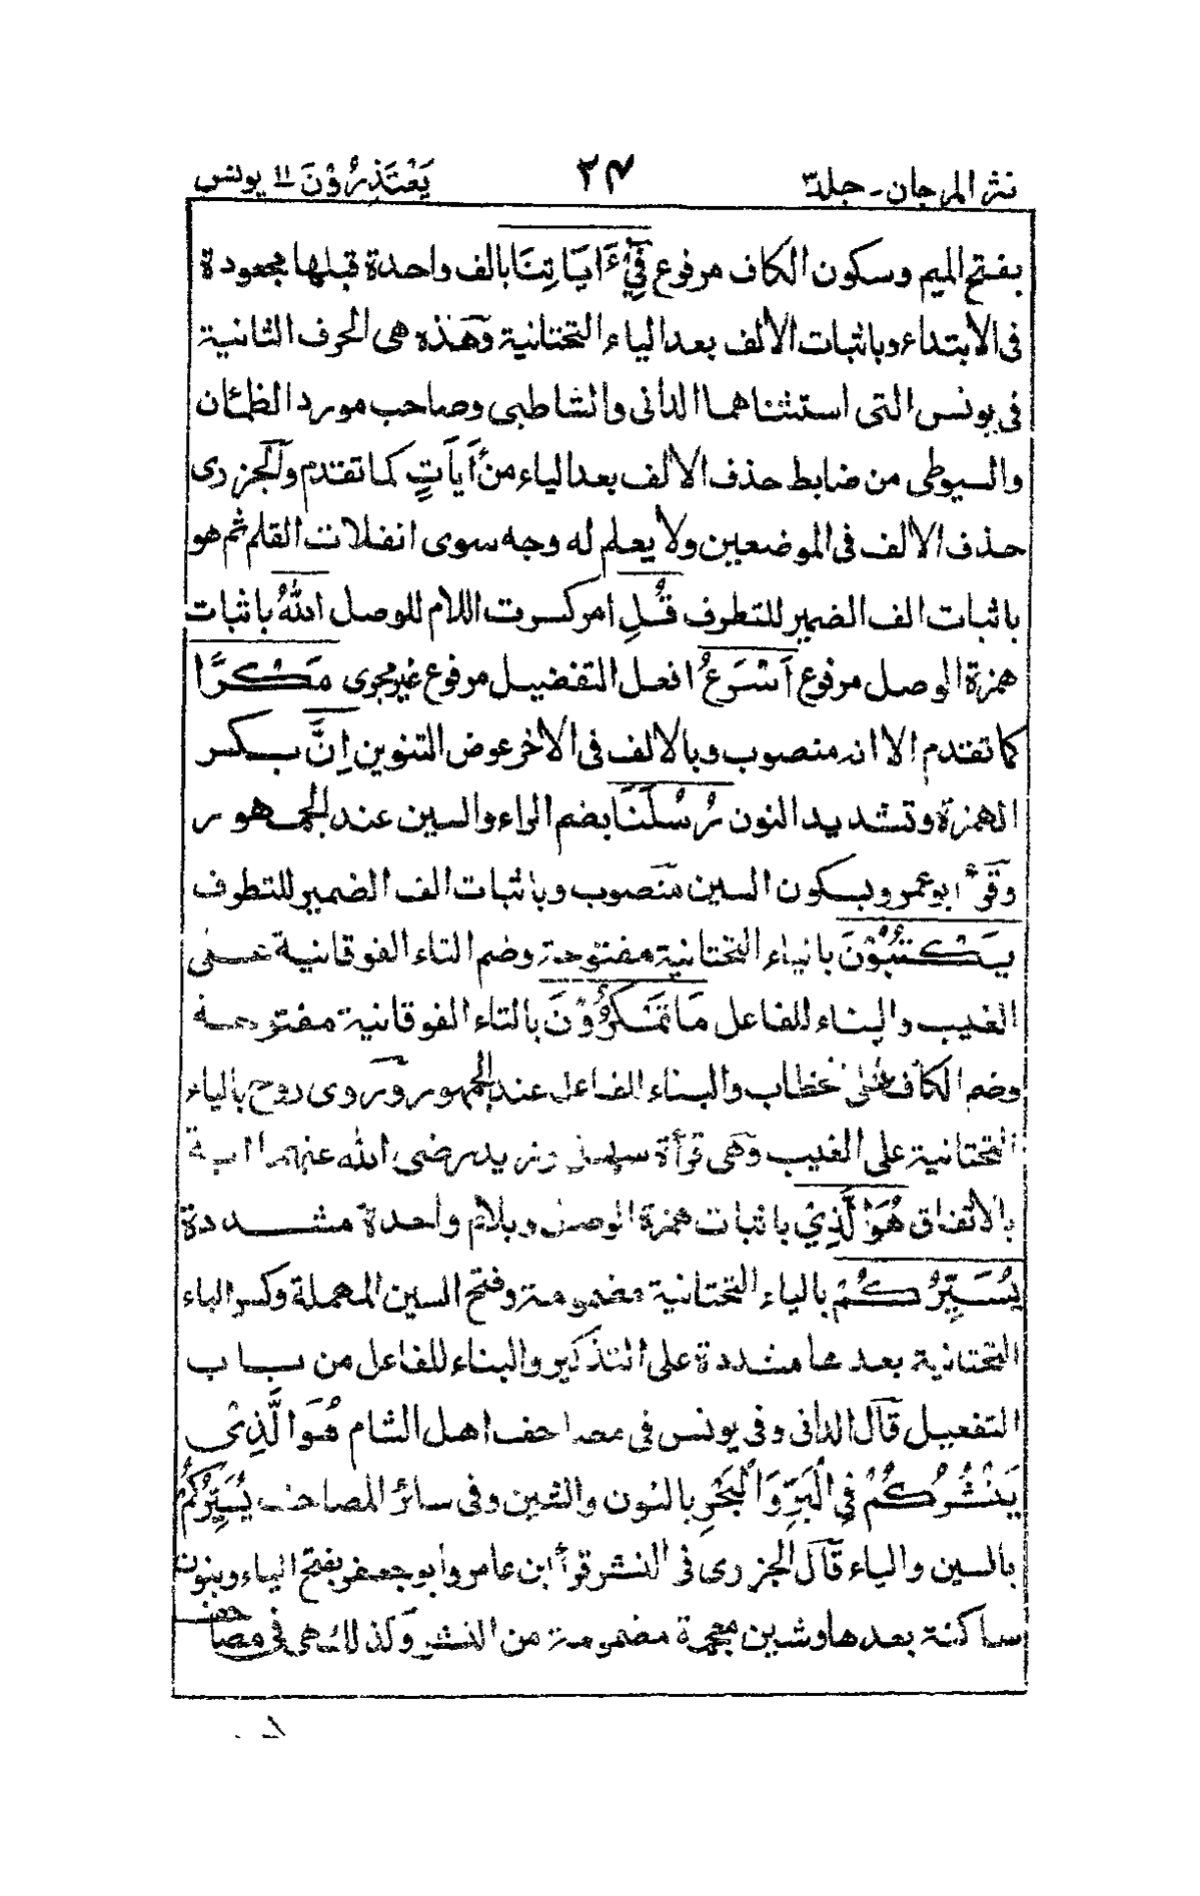 نثر المرجان - جلد ٣ ٢٤ يَعْتَذِرُوْنَ ١١ يونس
بفتح الميم وسكون الكاف مرفوع فِيْ ءَايَاتِنَا بالف واحدة قبلها مجعودة
فى الابتداء وباثبات الالف بعد الياء التحتانية وهذه هى الحرف الثانية
فى يونس التى استثناهما الدانى والشاطبى وصاحب مورد الظمئان
والسيوطى من ضابط حذف الالف بعد الياء من أَيَاتٍ كما تقدم والجزرى
حذف الالف فى الموضعين ولا يعلم له وجه سوى انفلات القلم ثم هو
باثبات الف الضمير للتطرف قُلِ امر كسرت اللام للوصل اللهُ باثبات
همزة الوصل مرفوع أَسْرَعُ افعل التفضيل مرفوع غير مجرى مَكْرًا
كما تقدم الا انه منصوب وبالالف فى الاخر عوض التنوين اِنَّ بكسر
الهمزة وتشديد النون رُسُلَنَا بضم الراء والسين عند الجمهور
وقرأ ابو عمرو بسكون السين منصوب وباثبات الف الضمير للتطرف
يَكْتُبُوْنَ بالياء التحتانية مفتوحة وضم التاء الفوقانية على
الغيب والبناء للفاعل مَا تَمْكُرُوْنَ بالتاء الفوقانية مفتوحة
وضم الكاف على خطاب والبناء للفاعل عند الجمهور وروى روح بالياء
التحتانية على الغيب وهى قرأة سهل ويزيد رضى الله عنهم ااية
بالاتفاق هُوَ الَّذِيْ باثبات همزة الوصل وبلام واحدة مشددة
يُسَيِّرُكُمْ بالياء التحتانية مضمومة وفتح السين المهملة وكسر الياء
التحتانية بعدها مشددة على التذكير والبناء للفاعل من باب
التفعيل قال الدانى وفى يونس فى مصاحف اهل الشام هُوَ الَّذِىْ
يَنْشُرُكُمْ فِي الْبَرِّ وَالْبَحْرِ بالنون والشين وفى سائر المصاحف يُسَيِّرُكُمْ
بالسين والياء قال الجزرى فى النشر قرأ ابن عامر وابو جعفر بفتح الياء وبنون
ساكنة بعدها وشين معجمة مضمومة من النشر وكذلك هى فى مصاحف